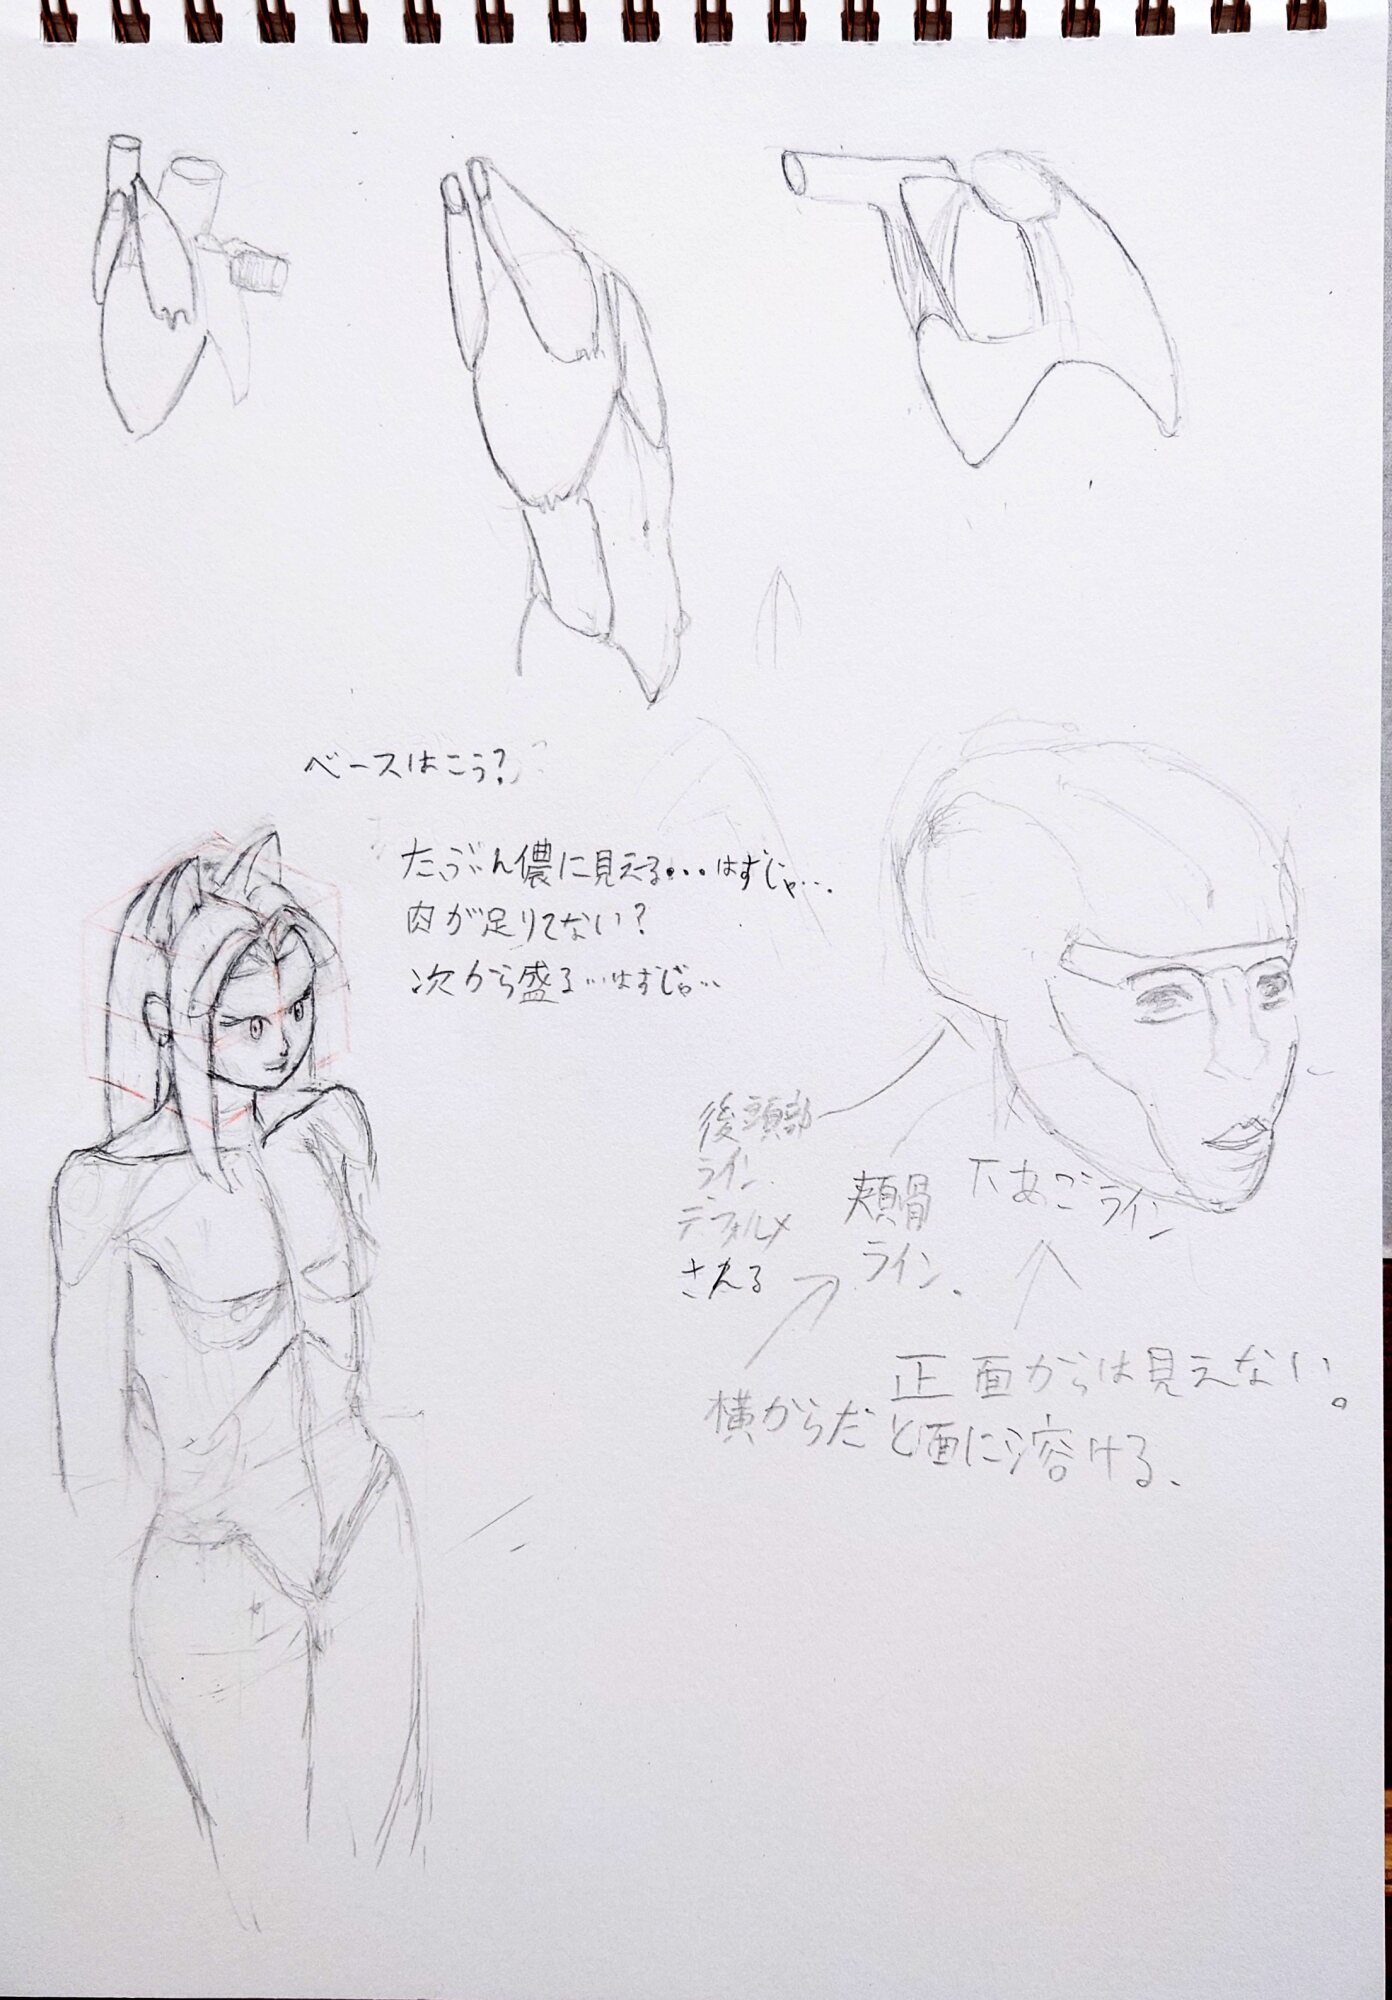 ベースはこう?
たぶん儂に見える・・・はずじゃ・・・
肉が足りてない?
次から盛る・・・はずじゃ・・・
後頭部
ライン
デフォルメ
さえる
頬骨
ライン。
下あごライン
正面からは見えない。
横からだと面に溶ける、